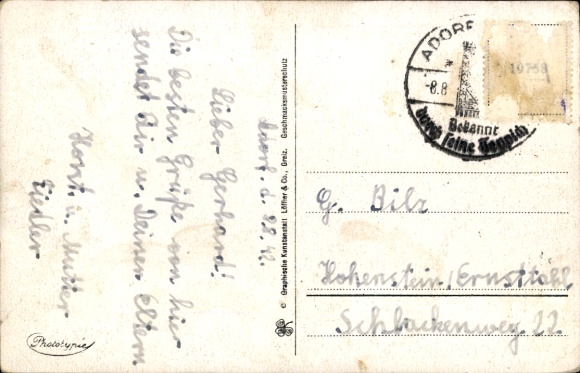 Adorf d. 8.8.42.
Lieber Gerhard!
Die besten Grüße von hier
sendet Dir u. Deinen Eltern
Horst u. Mutter
Fiedler
Phototypie
© Graphische Kunstanstalt Löffler & Co., Greiz. Geschmacksmusterschutz
ADORF
-8.8
Bekannt
durch seine Teppich
19758
G. Bilz
Hohenstein/Ernstthal
Schlackenweg 22